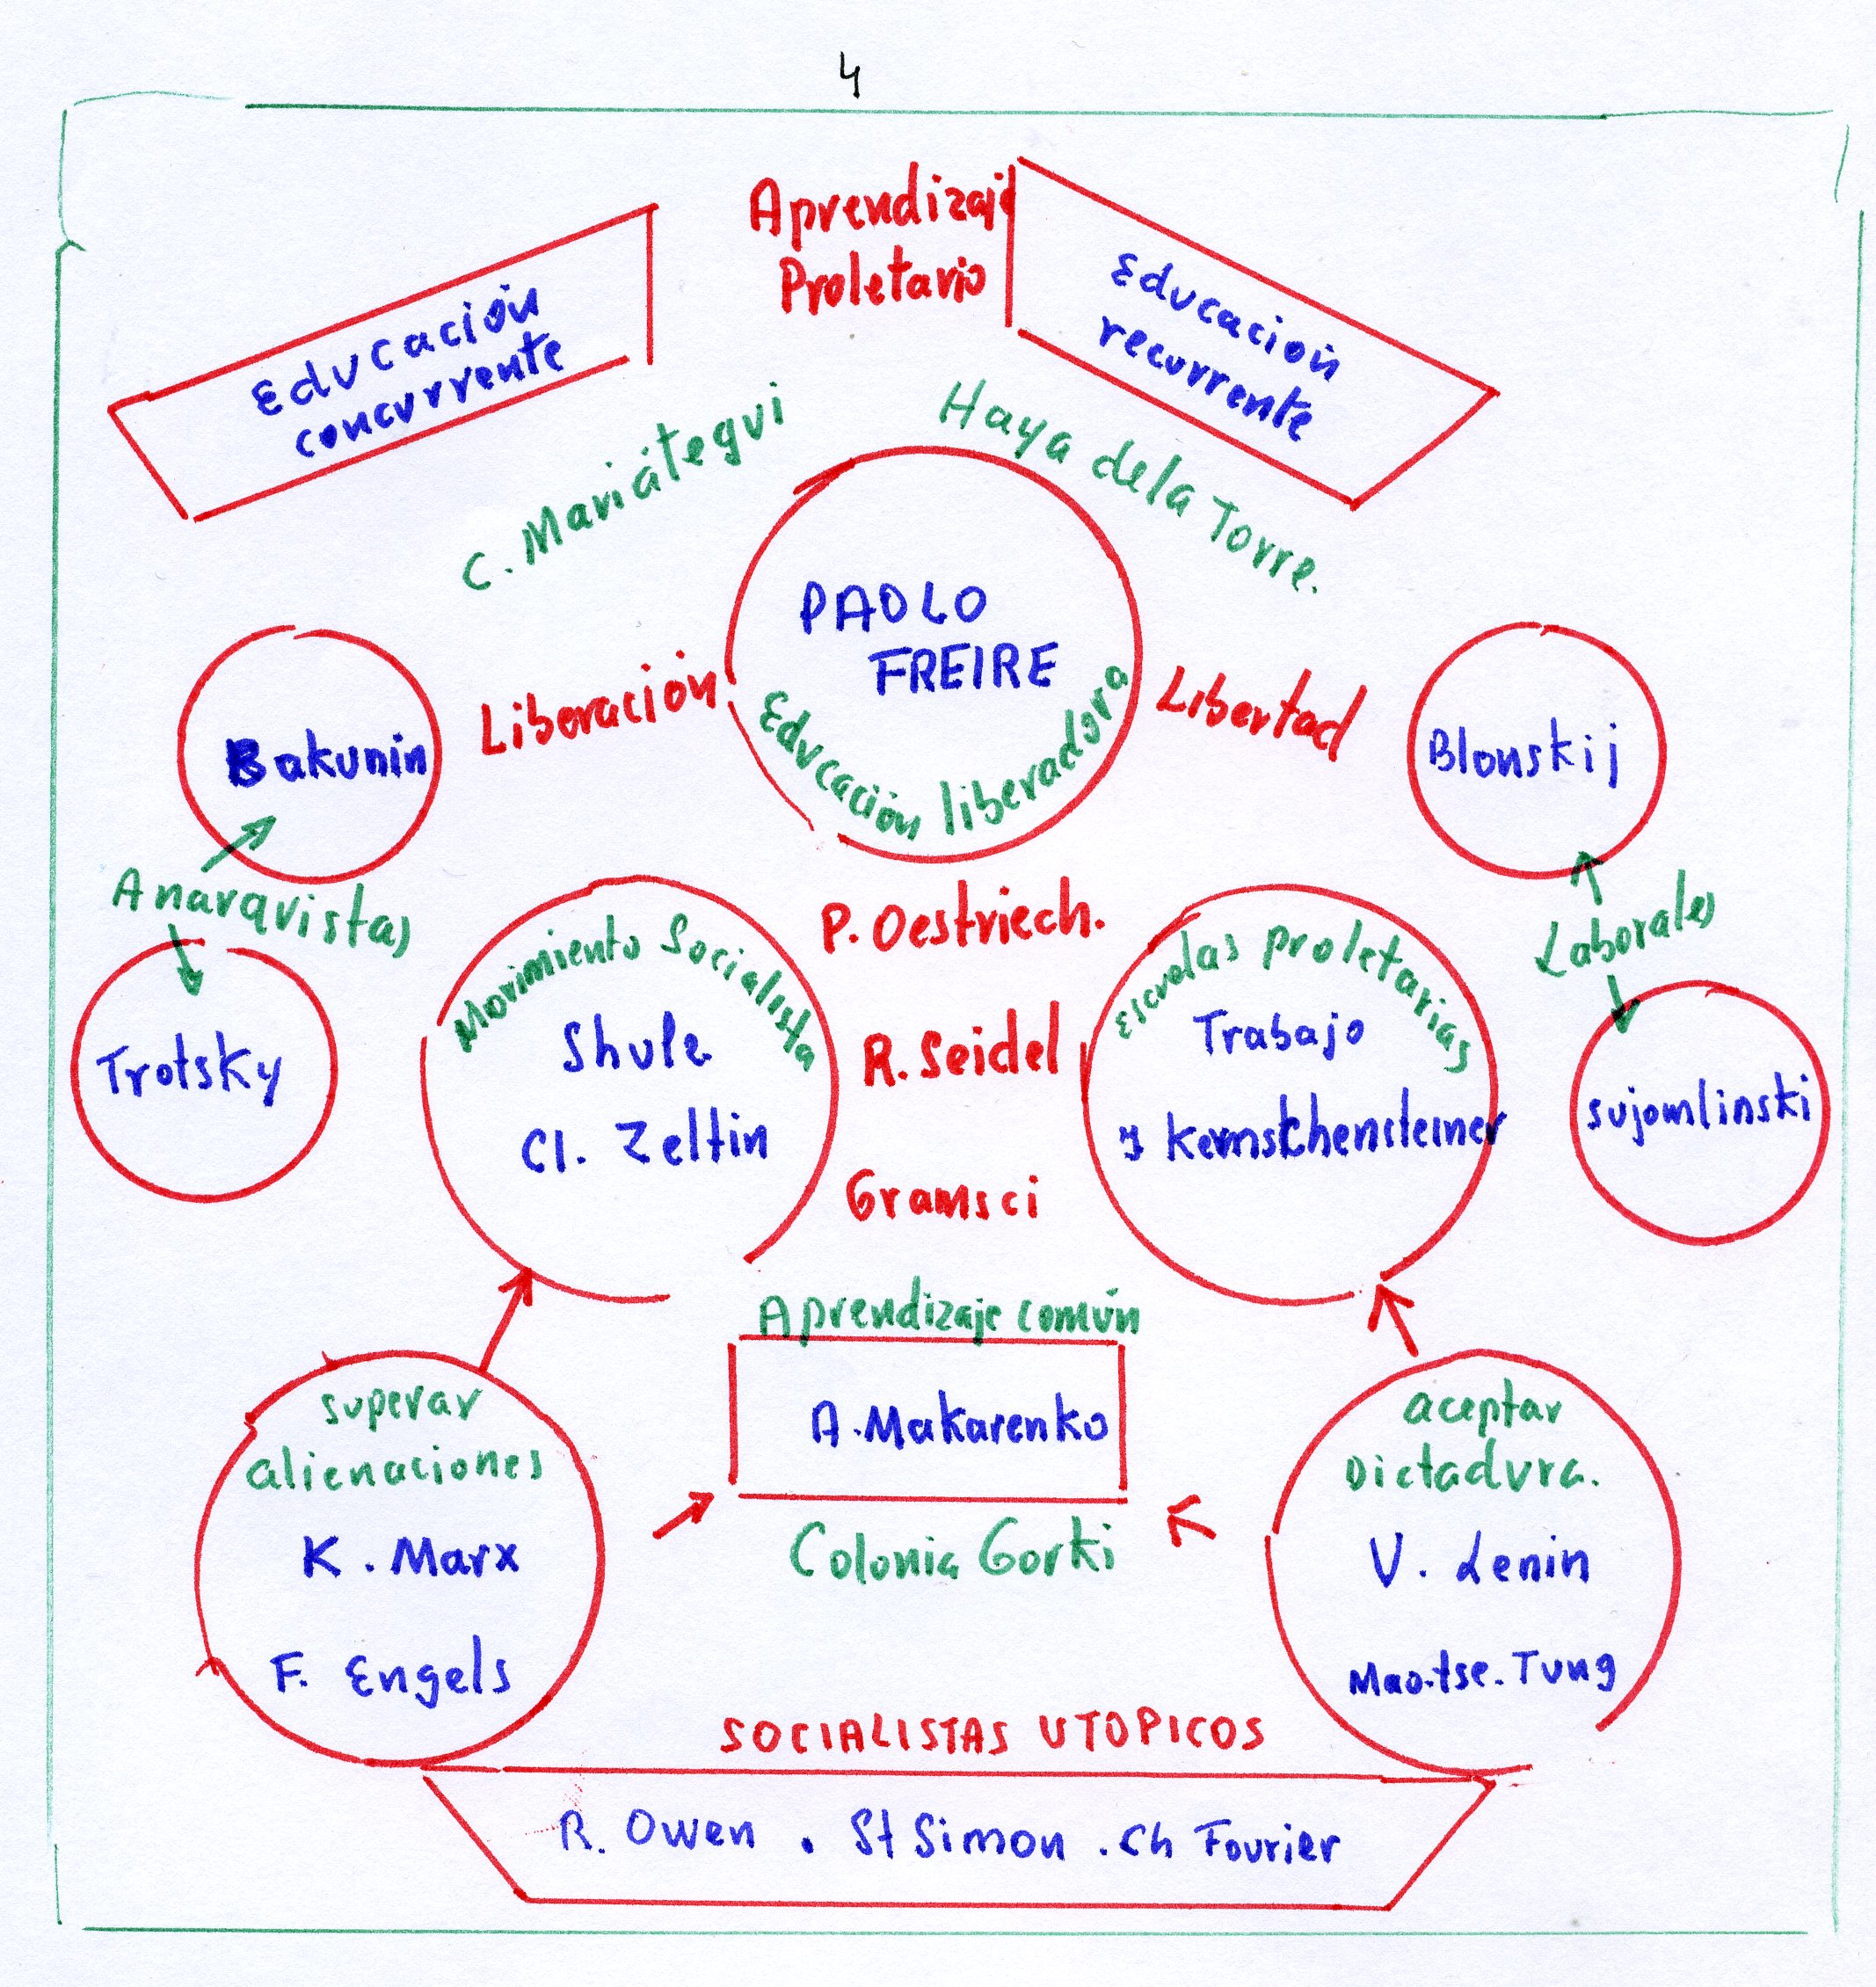 4
Aprendizaje
Proletario
Educación
concurrente
Educación
recurrente
C. Mariátegui
Haya de la Torre.
PAOLO
FREIRE
Educación liberadora
Liberación
Libertad
Bakunin
Blonskij
Anarquistas
Laborales
Trotsky
sujomlinski
Movimiento Socialista
Shulz
Cl. Zeltin
P. Oestriech.
R. Seidel
Gramsci
Escuelas proletarias
Trabajo
J Kernstchensteiner
Aprendizaje común
A. Makarenko
Colonia Gorki
superar
alienaciones
K. Marx
F. Engels
aceptar
Dictadura.
V. Lenin
Mao.tse.Tung
SOCIALISTAS UTOPICOS
R. Owen . St Simon . Ch Fourier